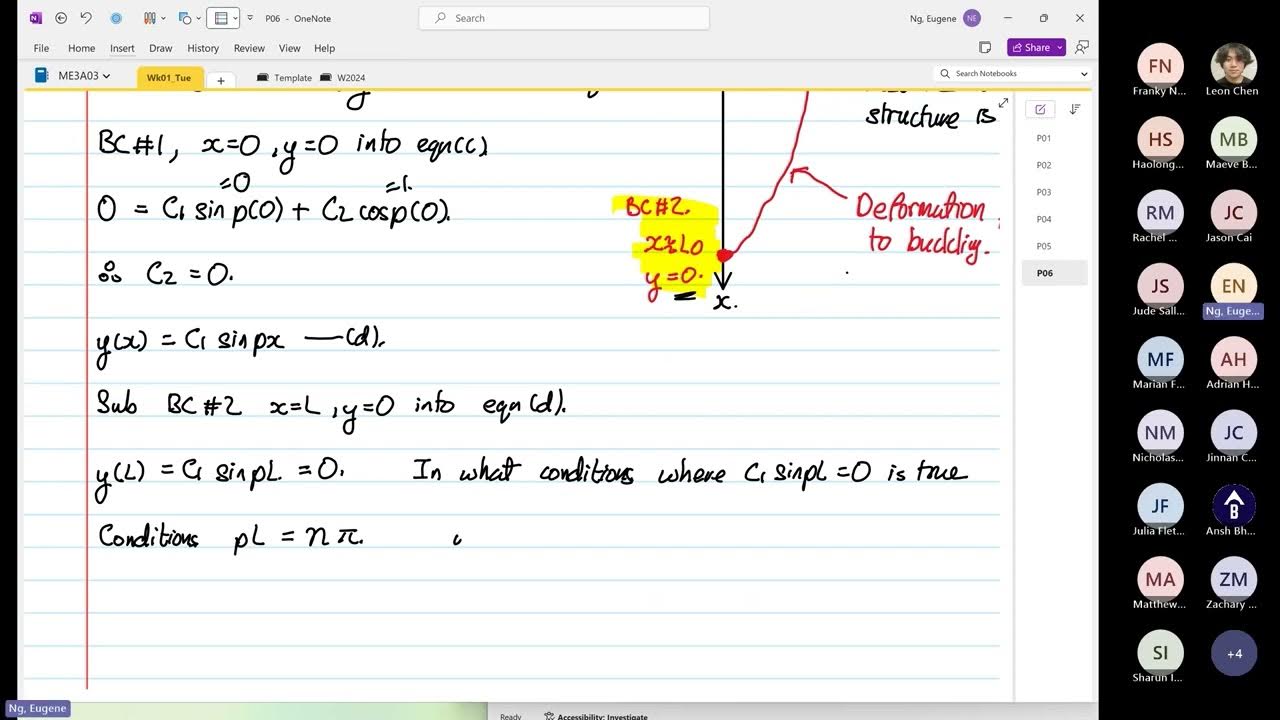 P06 - OneNote
Search
Ng, Eugene
NE
File Home Insert Draw History Review View Help
Share
ME3A03
Wk01_Tue
+
Template
W2024
Search Notebooks
structure is
BC#1, x=0, y=0 into eqn(c)
=0 =1.
0 = C1 sin p(0) + C2 cosp(0).
∴ C2 = 0.
y(x) = C1 sin px —(d).
Sub BC#2 x=L, y=0 into eqn(d).
y(L) = C1 sin pL = 0. In what conditions where C1 sinpL = 0 is true
Conditions pL = nπ.
BC#2.
y=0.
x.
Deformation
to buckling.
P01
P02
P03
P04
P05
P06
FN
Franky N...
Leon Chen
HS
Haolong...
MB
Maeve B...
RM
Rachel ...
JC
Jason Cai
JS
Jude Sall...
EN
Ng, Euge...
MF
Marian F...
AH
Adrian H...
NM
Nicholas...
JC
Jinnan C...
JF
Julia Flet...
B
Ansh Bh...
MA
Matthew...
ZM
Zachary ...
SI
Sharun I...
+4
Ng, Eugene
Ready
Accessibility: Investigate